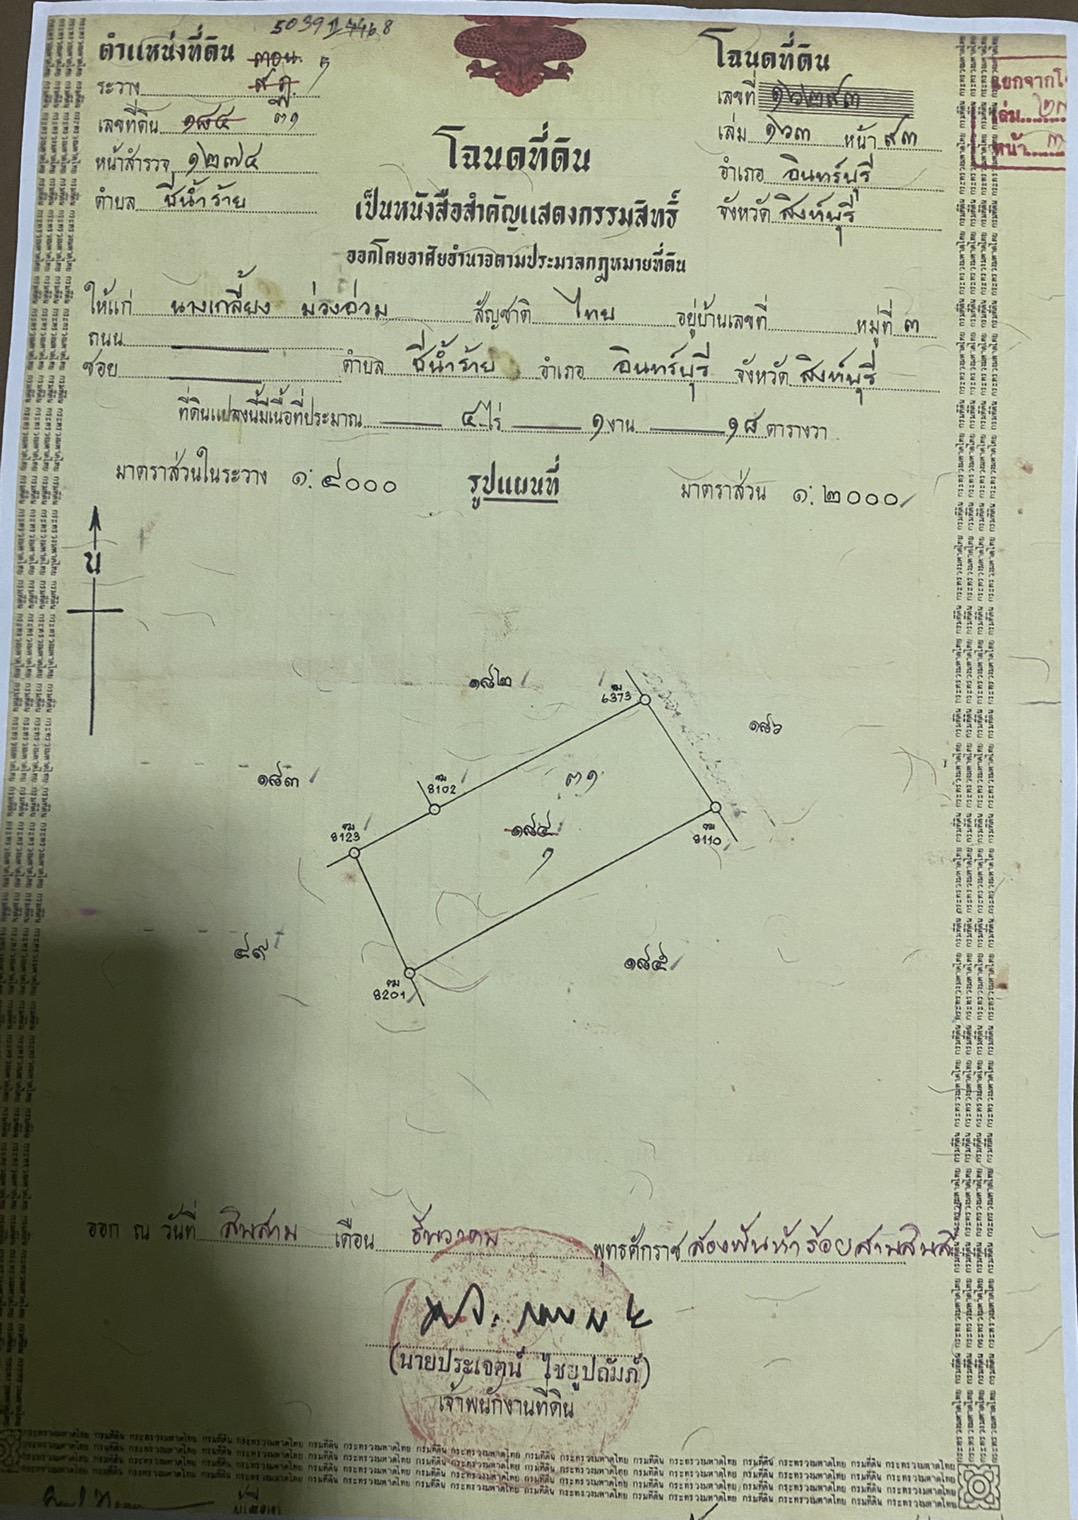 5039 II 7468
ตำแหน่งที่ดิน
ระวาง
เลขที่ดิน ๑๘๔ ๓๑
หน้าสำรวจ ๑๒๗๔
ตำบล ชีน้ำร้าย
โฉนดที่ดิน
เลขที่ ๑๖๒๙๓
เล่ม ๑๖๓ หน้า ๙๓
อำเภอ อินทร์บุรี
จังหวัด สิงห์บุรี
เล่ม
หน้า
โฉนดที่ดิน
เป็นหนังสือสำคัญแสดงกรรมสิทธิ์
ออกโดยอาศัยอำนาจตามประมวลกฎหมายที่ดิน
ให้แก่ นางเกลี้ยง ม่วงอ่วม สัญชาติ ไทย อยู่บ้านเลขที่ หมู่ที่ ๓
ถนน
ซอย ตำบล ชีน้ำร้าย อำเภอ อินทร์บุรี จังหวัด สิงห์บุรี
ที่ดินแปลงนี้มีเนื้อที่ประมาณ ๔ ไร่ ๑ งาน ๑๘ ตารางวา
มาตราส่วนในระวาง ๑:๔๐๐๐ รูปแผนที่ มาตราส่วน ๑:๒๐๐๐
น
๑๘๒
6373
๑๘๖
๑๘๓
8102
๓๑
๑๘๔
๑
8123
8110
๔๙
๑๘๕
8201
ออก ณ วันที่ สิบสาม เดือน ธันวาคม พุทธศักราช สองพันห้าร้อยสามสิบสี่
(นายประเจตน์ ไชยูปถัมภ์)
เจ้าพนักงานที่ดิน
กระทรวงมหาดไทย กรมที่ดิน กระทรวงมหาดไทย กรมที่ดิน กระทรวงมหาดไทย กรมที่ดิน